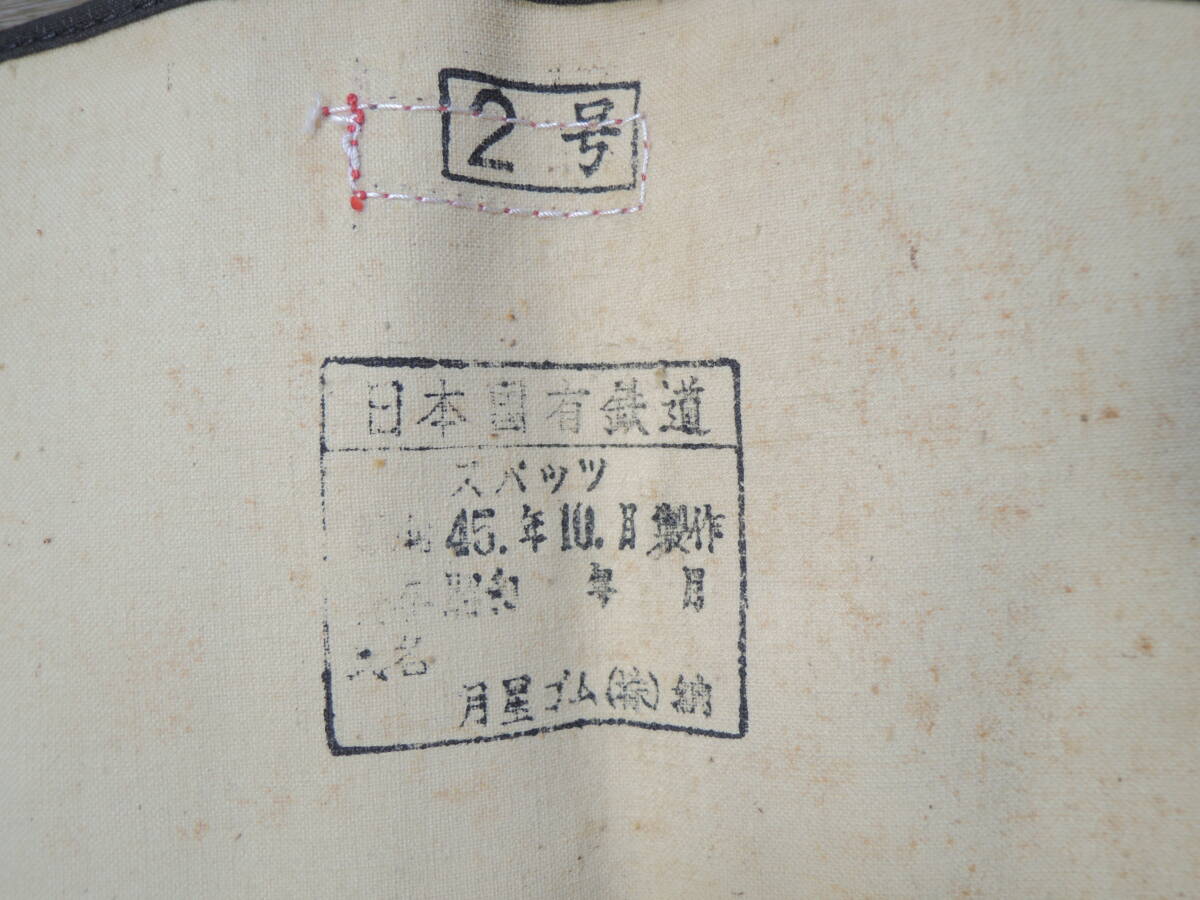 2号
日本国有鉄道
スパッツ
45.年10.月製作
昭和 年 月
氏名
月星ゴム(株)納